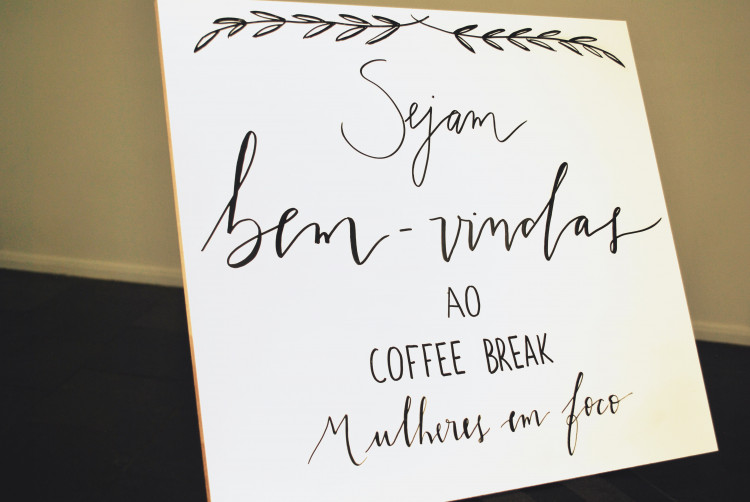 Sejam
bem-vindas
AO
COFFEE BREAK
Mulheres em foco